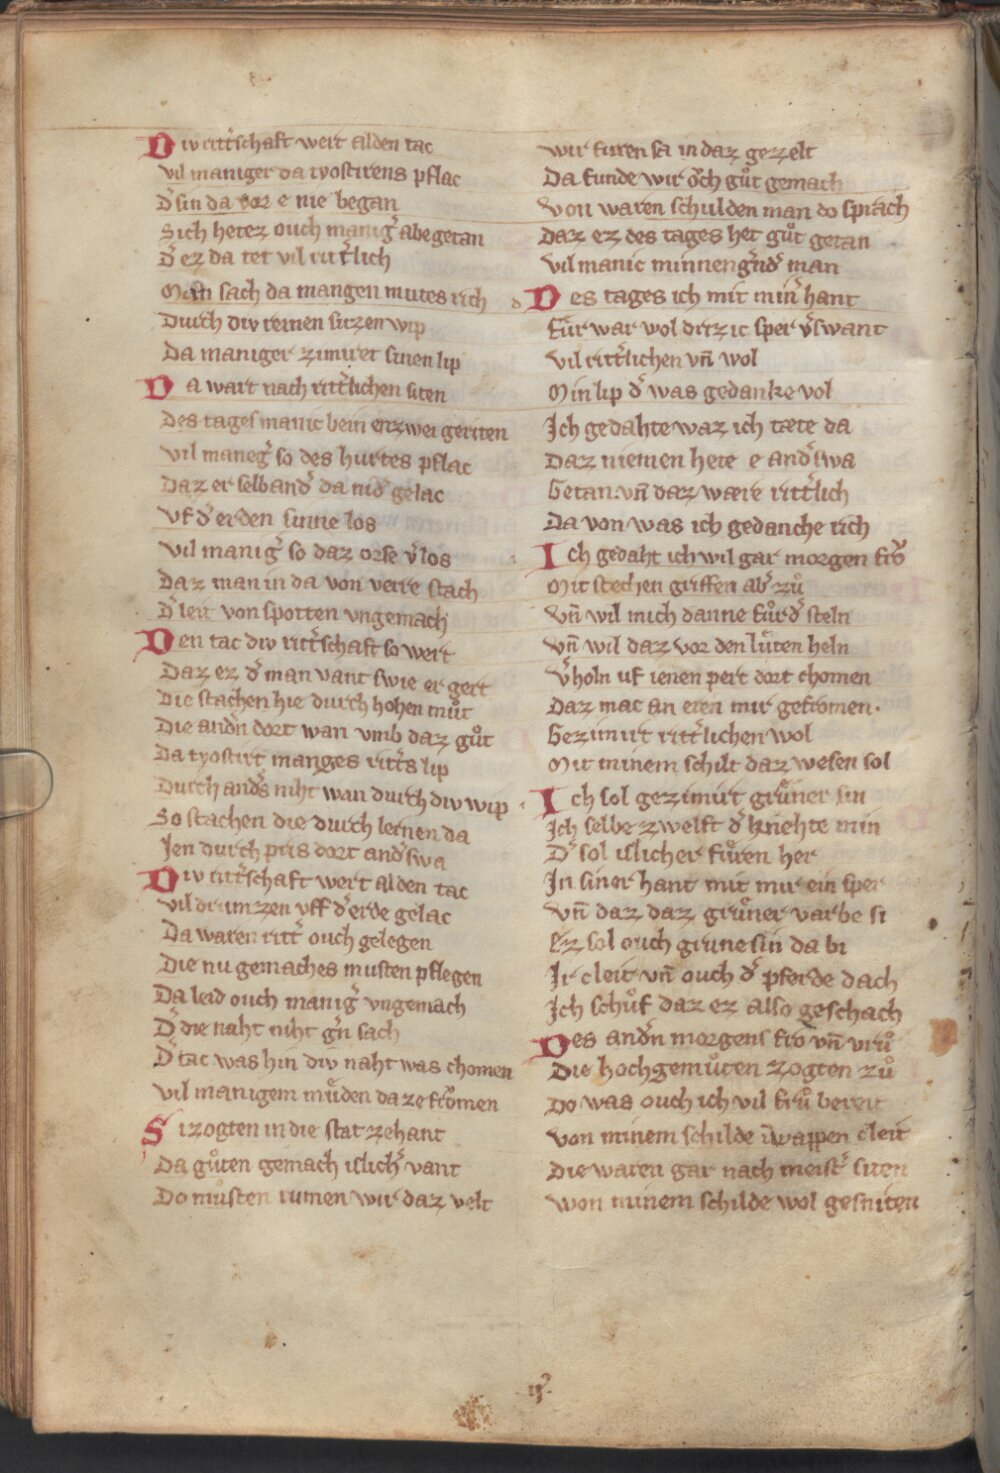 Div rittˀschaft wert alden tac
vil maniger da tyostirens pflac
Dˀ sin da vor e nie began
Sich hetez ouch manigˀ abegetan
Dˀ ez da tet vil rittˀlich
Man sach da mangen mutes rich
Durch div reinen sitzen wip
Da maniger zimiret sinen lip
Da wart nach rittˀlichen siten
Des tages manic bein enzwei geriten
vil manegˀ so des hurtes pflac
Daz er selbandˀ da nidˀ gelac
Vf dˀ erden sinne los
Vil manigˀ so daz orse vˀlos
Daz man in da von verre stach
Dˀ leit von spotten vngemach
Den tac div rittˀschaft so wert
Daz ez dˀ man vant swie er gert
Die stachen hie durch hohen muͦt
Die andˀn dort wan vmb daz guͦt
Da tyostirt manges rittˀs lip
Durch andˀs niht wan durch div wip
So stachen die durch lernen da
Jen durch pris dort andˀswa
Div rittˀschaft wert alden tac
vil drumzen vff dˀ erde gelac
Da waren rittˀ ouch gelegen
Die nu gemaches musten pflegen
Da leid ouch manigˀ vngemach
Dˀ die naht niht gˀn sach
Dˀ tac was hin div naht was chomen
vil manigem muͤden daze fromen
Si zogten in die stat zehant
Da guͦten gemach islichˀ vant
Do muͦsten rumen wir daz velt
wir furen sa in daz gezelt
Da funde wir oͮch guͦt gemach
Von waren schulden man do sprach
Daz ez des tages het guͦt getan
vil manic minnengˀndˀ man
Des tages ich mit minˀ hant
fuͤr war wol drizic sper vˀswant
vil rittˀlichen vn̄ wol
Min lip dˀ was gedanke vol
Ich gedahte waz ich tæte da
Daz niemen hete e andˀswa
Getan vn̄ daz wære rittˀlich
Da von was ich gedanche rich
Ich gedaht ich wil gar morgen fro
Mit stechen griffen abˀ zuͦ
vn̄ wil mich danne fuͤrdˀ steln
vn̄ wil daz vor den luͤten heln
vˀholn uf ienen pert dort chomen
Daz mac an eren mir gefromen.
Gezimirt rittˀlichen wol
Mit minem schilt daz wesen sol
Ich sol gezimirt gruͤner sin
Ich selbe zwelft dˀ knehte min
Dˀ sol islicher fuͤren her
In siner hant mit mir ein sper
vn̄ daz daz gruͤner varbe si
Ez sol ouch grune sin da bi
Ir cleit vn̄ ouch dˀ pferde dach
Ich schuͦf daz ez also geschach
Des andˀn morgens fro vn̄ vruͦ
Die hochgemuͦten zogten zuͦ
Do was ouch ich vil fruͦ bereit
von minem schilde wappen cleit
Die waren gar nach meistˀ siten
von minem schilde wol gesniten